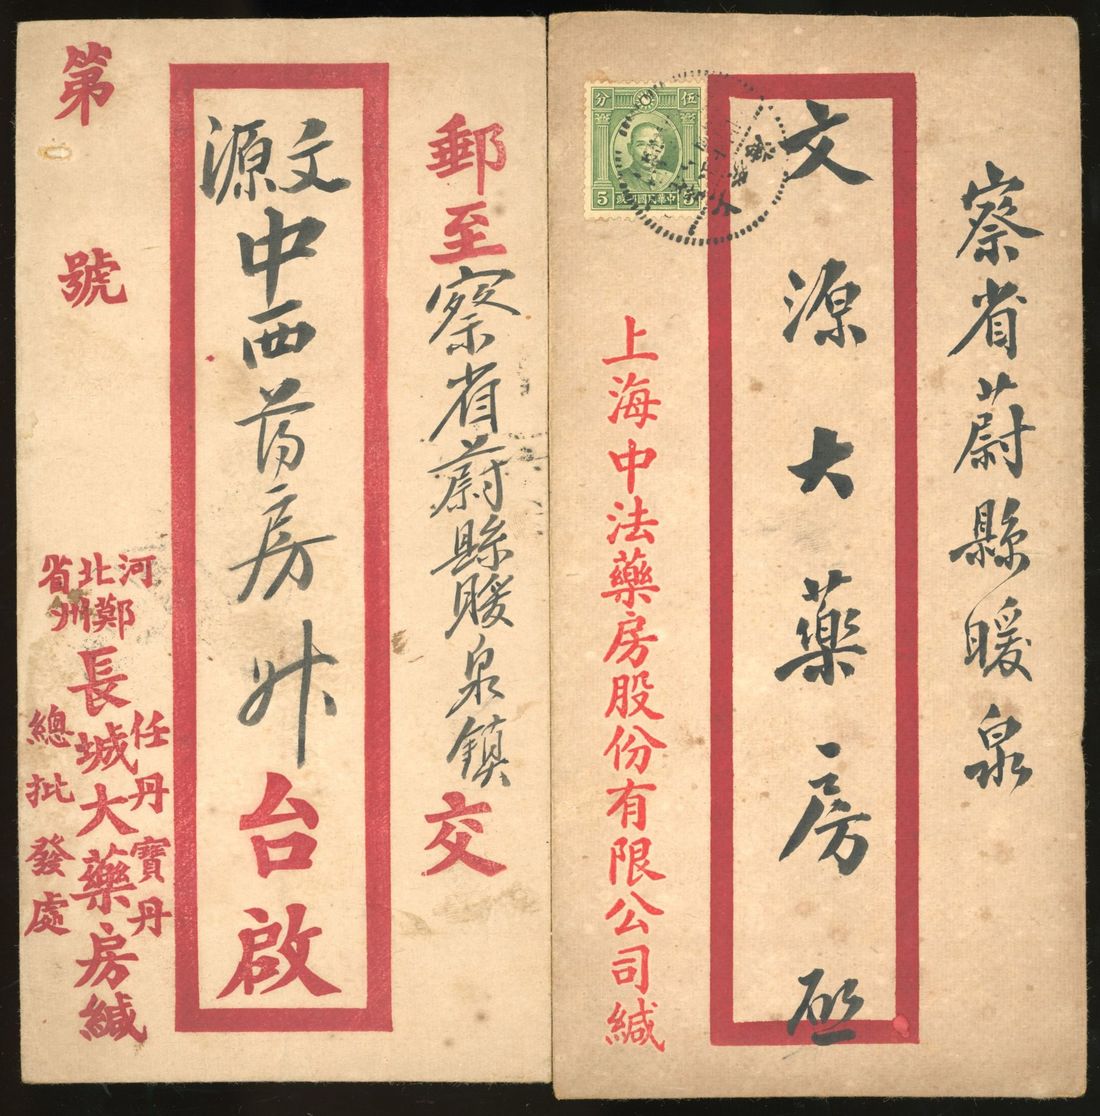 郵至察省蔚縣暖泉鎮交
文源
中西药房台啟
第號
河北省
鄭州
任丹寶丹
長城大藥房緘
總批發處
察省蔚縣暖泉
文源大藥房啟
上海中法藥房股份有限公司緘
伍分
5
中華民國郵政